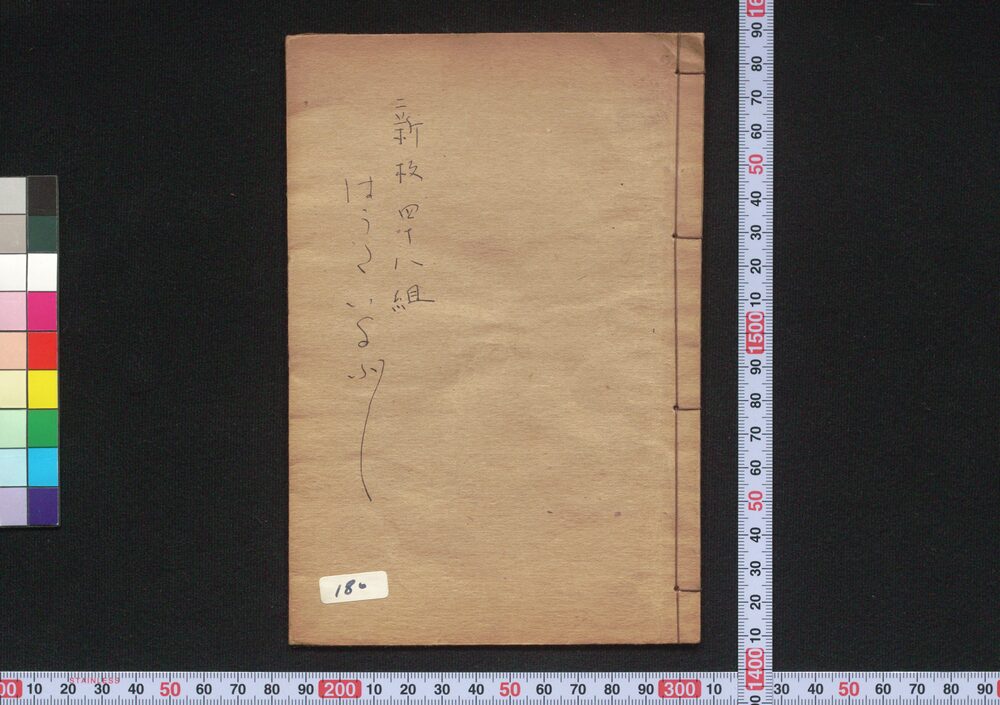 新板四十八組
はうたいよぶし
180
STAINLESS
10 20 30 40 50 60 70 80 90 200 10 20 30 40 50 60 70 80 90 300 10 30 40 50 60 70 80 90
1400 10 20 30 40 50 60 70 80 90 1500 10 20 30 40 50 60 70 80 90